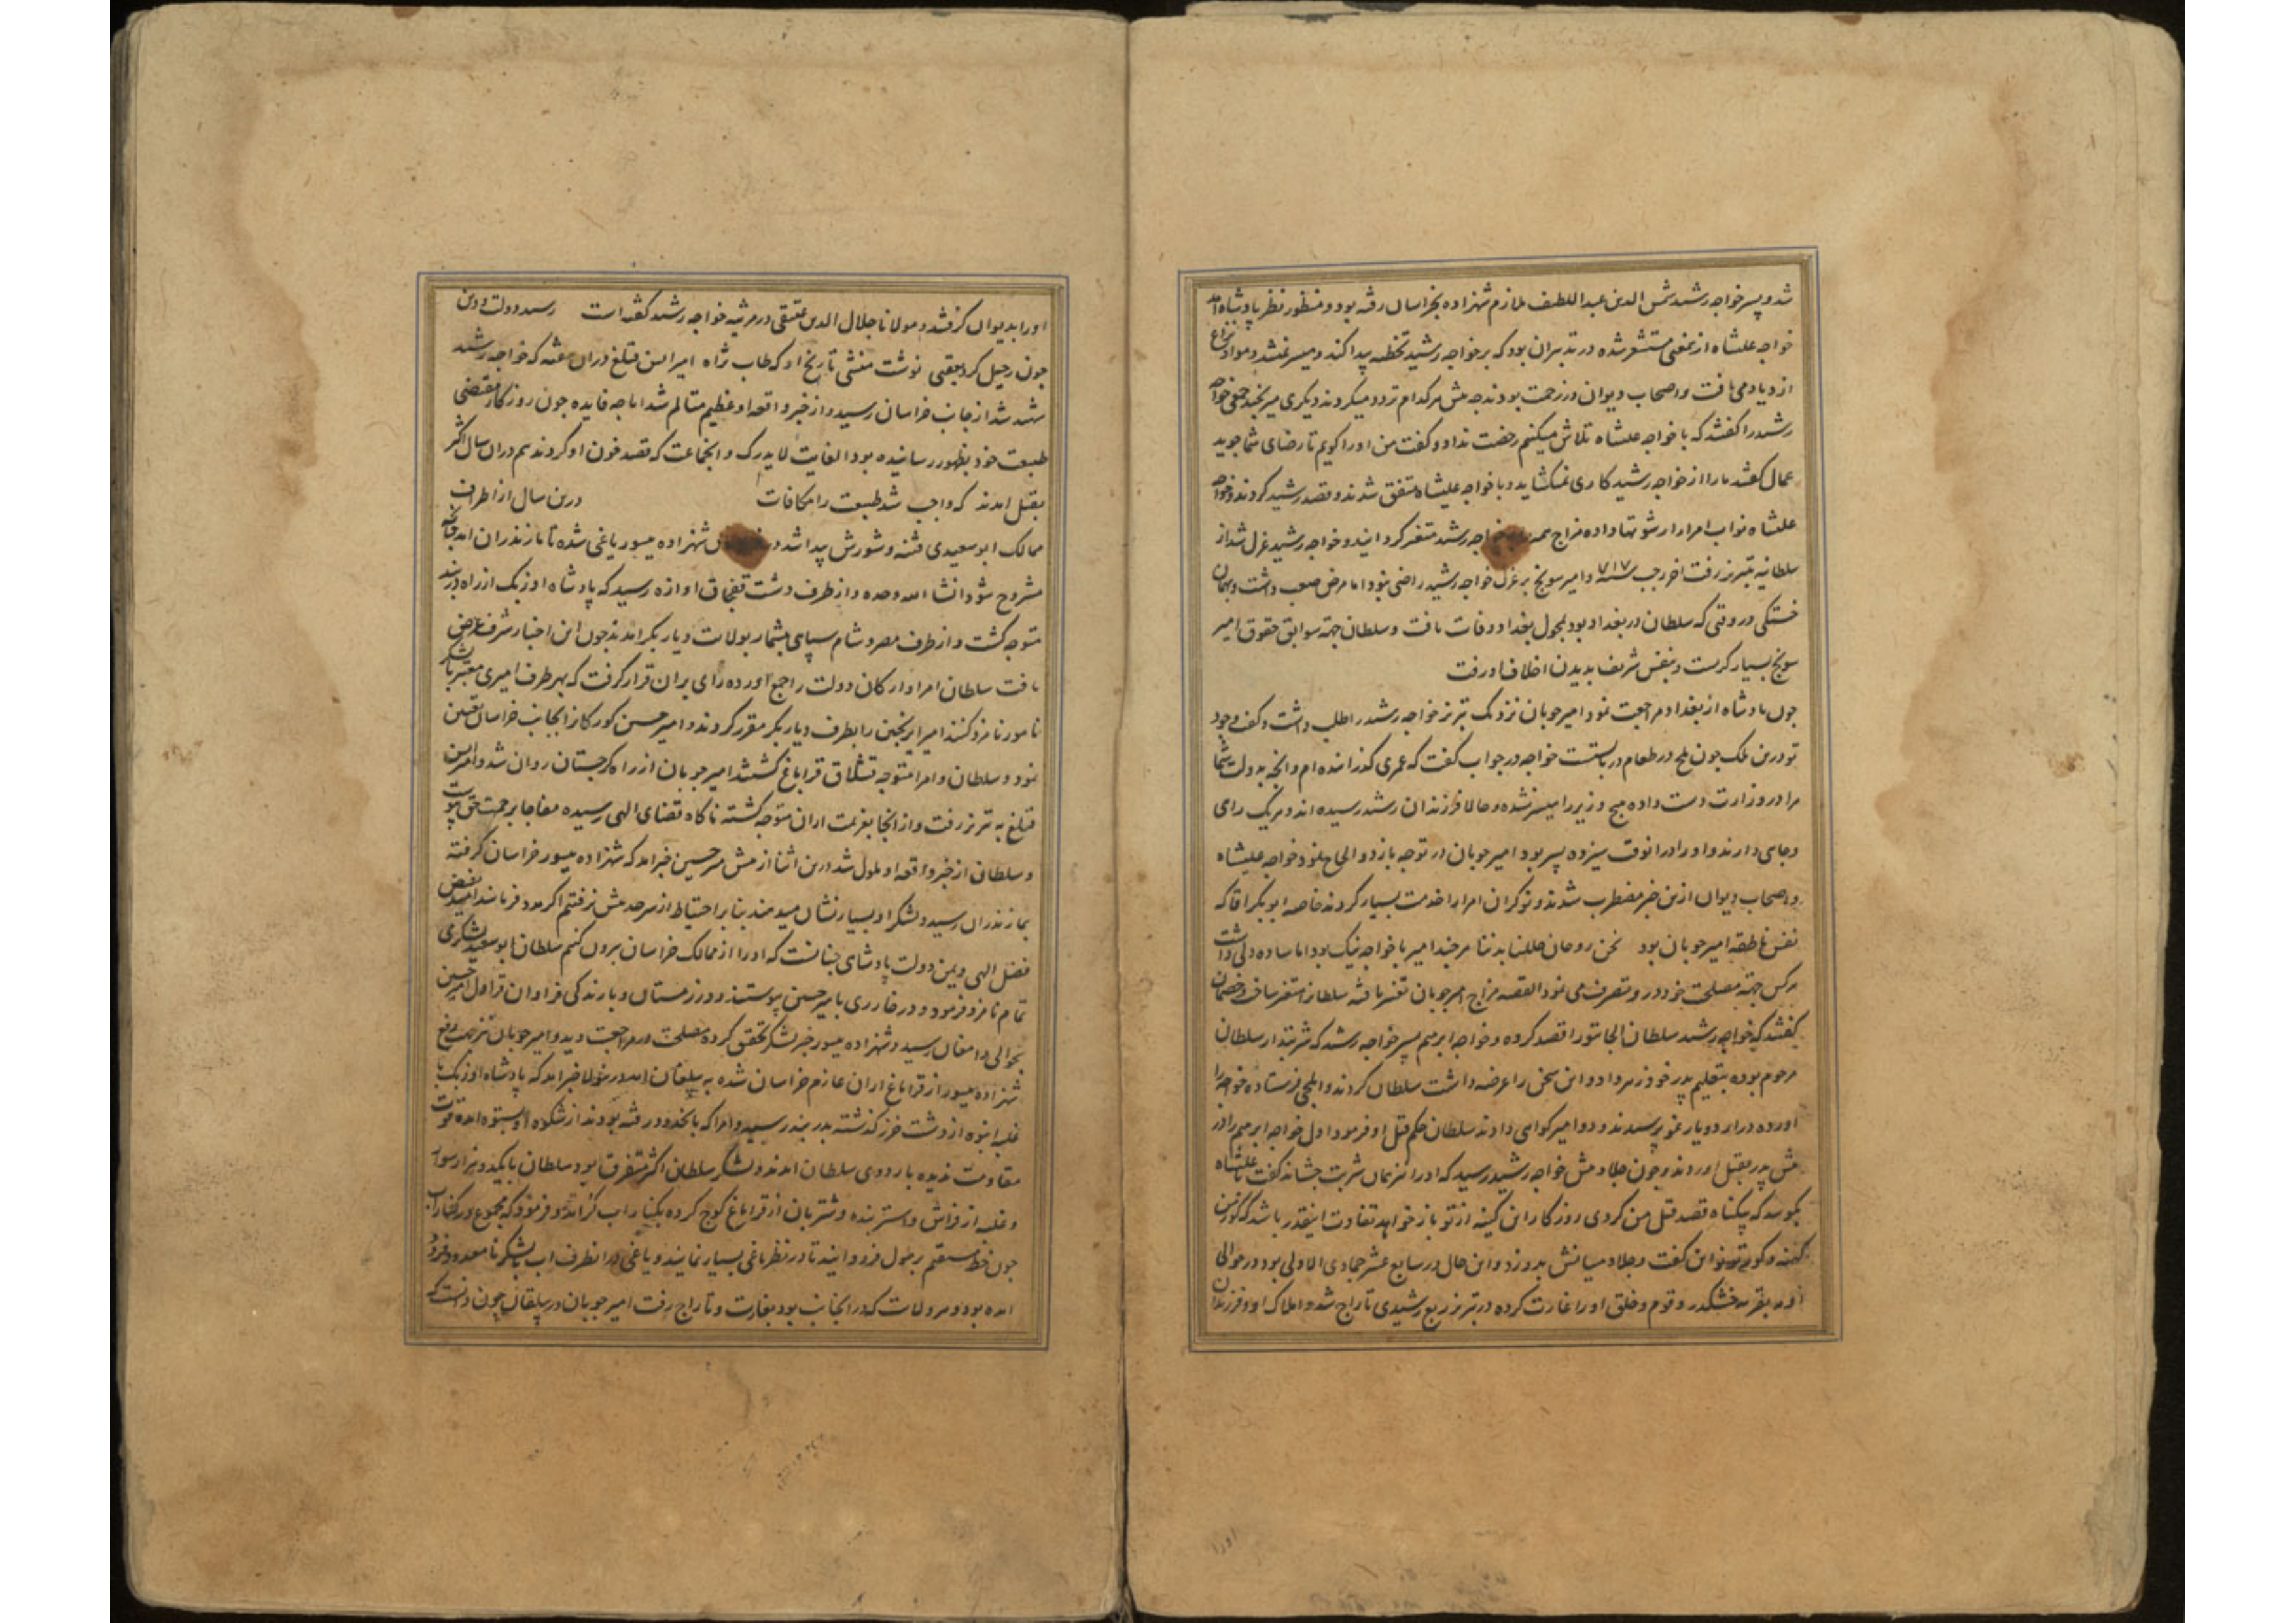 شد و پسر خواجه رشید شمس الدین عبد اللطیف ملازم شهزاده بخراسان رفته بود و منظور نظر پادشاه
خواجه علیشاه ازین معنی مستشعر شده در تدبیر آن بود که بر خواجه رشید تخطئه پیدا کند و میسر نمیشد و مواد نزاع
ازدیاد می یافت و اصحاب دیوان در زحمت بودند چه پیش هر کدام تردد میکردند دیگری میرنجید جمعی خواجه
رشید را گفتند که با خواجه علیشاه تلاش میکنیم رخصت نداد و گفت من او را گویم تا رضای شما جوید
عمال گفتند ما را از خواجه رشید کاری نمیگشاید و با خواجه علیشاه متفق شدند و قصد رشید کردند و خواجه
علیشاه نواب امرا را رشوتها داده مزاج همه خواجه رشید متغیر گردانید و خواجه رشید عزل شد از
سلطانیه بتبریز رفت اخر رجب سنه ۷۱۷ و امیر سونج بر عزل خواجه رشید راضی نبود اما مرض صعب داشت و بهمان
خستگی در وقتی که سلطان در بغداد بود بمحول بغداد وفات یافت و سلطان جهته سوابق حقوق امیر
سونج بسیار گریست و بنفس شریف بدیدن اخلاف او رفت
چون پادشاه از بغداد مراجعت نمود امیر چوبان نزدیک تبریز خواجه رشید را طلب داشت و گفت وجود
تو درین ملک چون ملح در طعام دربایست خواجه در جواب گفت که عمری گذرانده ام و انچه بدولت شما
مرا در وزارت دست داده هیچ وزیر را میسر نشده و حالا فرزندان رشید رسیده اند و هر یک رای
و جاهی دارند و او را در انوقت سیزده پسر بود امیر چوبان در توجه باز دو الحاح نمود خواجه علیشاه
و اصحاب دیوان ازین خبر مضطرب شدند و نوکران امرا را خدمت بسیار کردند خاصه ابوبکر اقا که
نفس ناطقه امیر چوبان بود نحن روحان حللنا بدنا هر چند امیر با خواجه نیک بود اما ساده دلی داشت
هر کس جهته مصلحت خود درو تصرف می نمود القصه مزاج امیر چوبان تغییر یافته سلطان را متغیر ساخت و خصمان
گفتند که خواجه رشید سلطان الجایتو را قصد کرده و خواجه ابرهیم پسر خواجه رشید که شربتدار سلطان
مرحوم بوده بتعلیم پدر خود زهر داد و این سخن را عرضه داشت سلطان کردند و ایلچی فرستاده خواجه را
اورده در اردو یارغو پرسیدند و دو امیر گواهی دادند سلطان حکم قتل او فرمود اول خواجه ابرهیم را در
پیش پدر بقتل اوردند و چون جلاد پیش خواجه رشید رسید که او را نیز همان شربت چشاند گفت با علیشاه
بگویید که بیگناه قصد قتل من کردی روزگار این کینه از تو باز خواهد تفاوت اینقدر باشد که گور من
کهنه و گور تو نو این گفت و جلاد میانش بدو زد و این حال در سابع عشر جمادی الاولی بود در حوالی
بقریه خشکدر و قوم و خلق او را غارت کرده در تبریز ربع رشیدی تاراج شد و املاک او و فرزندان
او را
او را بدیوان گرفتند و مولانا جلال الدین عتیقی در مرثیه خواجه رشید گفته است رشید دولت و دین
چون رحیل کرد بعقبی نوشت منشی تاریخ او که طاب ثراه امیر ایسن قتلغ دران هفته که خواجه رشید
شهید شد از جانب خراسان رسید و از خبر واقعه او عظیم متالم شد اما چه فایده چون روزگار مقتضی
طبیعت خود بظهور رسانیده بود الفایت لا یدرک و انجماعت که قصد خون او کردند هم دران سال اکثر
بقتل امدند که واجب شد طبیعت را مکافات درین سال از اطراف
ممالک ابوسعیدی فتنه و شورش پیدا شد شهزاده یسور یاغی شده تا مازندران امد چنانچه
مشروح شود انشا الله وحده و از طرف دشت قفچاق اوازه رسید که پادشاه اوزبک از راه دربند
متوجه گشت و از طرف مصر و شام سپاهی بیشمار بولایت دیار بکر امدند چون این اخبار شرف عرض
یافت سلطان امرا و ارکان دولت را جمع اورده رای بران قرار گرفت که بهر طرف امیری معتبر با لشکر
نامور نامزد کنند امیر ایرنجین را بطرف دیار بکر مقرر کردند و امیر حسین کورکان را بجانب خراسان تعیین
نمود و سلطان و امرا متوجه قشلاق قراباغ گشتند امیر چوبان از راه گرجستان روان شد و امیر ایسن
قتلغ به تبریز رفت و از انجا بعزیمت اران متوجه گشته ناگاه قضای الهی رسیده مفاجا برحمت حق پیوست
و سلطان از خبر واقعه او ملول شد درین اثنا از پیش میر حسین خبر امد که شهزاده یسور خراسان گرفته
بمازندران رسید و لشکر او بسیار نشان میدهند بنا بر احتیاط از سرحد پیش نرفتم اگر مدد فرمایند امید بفیض
فضل الهی و یمن دولت پادشاهی چنانست که او را از ممالک خراسان بیرون کنم سلطان ابوسعید لشکری
تمام نامزد فرمود و در خار ری بامیر حسین پیوستند و در زمستان و بارندگی فراوان قراول امیر حسین
بحوالی دامغان رسید و شهزاده یسور خبر لشکر تحقیق کرده مصلحت در مراجعت دید و امیر چوبان نیز بجهت دفع
شهزاده یسور از قراباغ اران عازم خراسان شده به بیلقان امد خبر امد که پادشاه اوزبک با
غلبه انبوه از دشت خزر گذشته بدربند رسید و امرا که بانحدود رفته بودند از شکوه او بستوه امده قوت
مقاومت ندیده باردوی سلطان امدند و لشکر سلطان اکثر متفرق بود سلطان با یکدو هزار سوار
و غلبه از فراش و استربنده و شتربان از قراباغ کوچ کرده بکنار اب کر امد و فرمود که مجموع در کنار اب
چون خط مستقیم بر طول فرود ایند تا در نظر یاغی بسیار نمایند و یاغی در انطرف اب با لشکر نامعدود فرود
امده بود و هر ولایت که در انجانب بود بغارت و تاراج رفت امیر چوبان در بیلقان چون دانست که